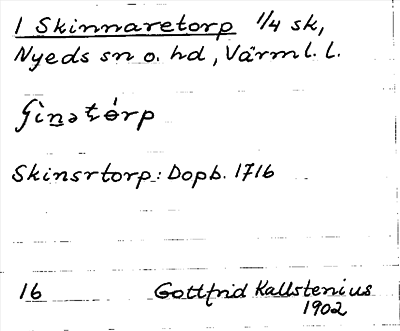 1 Skinnaretorp 1/4 sk,
Nyeds sn o. hd, Värml. l.
Skinsrtorp: Dopb. 1716
16 Gottfrid Kallstenius
1902